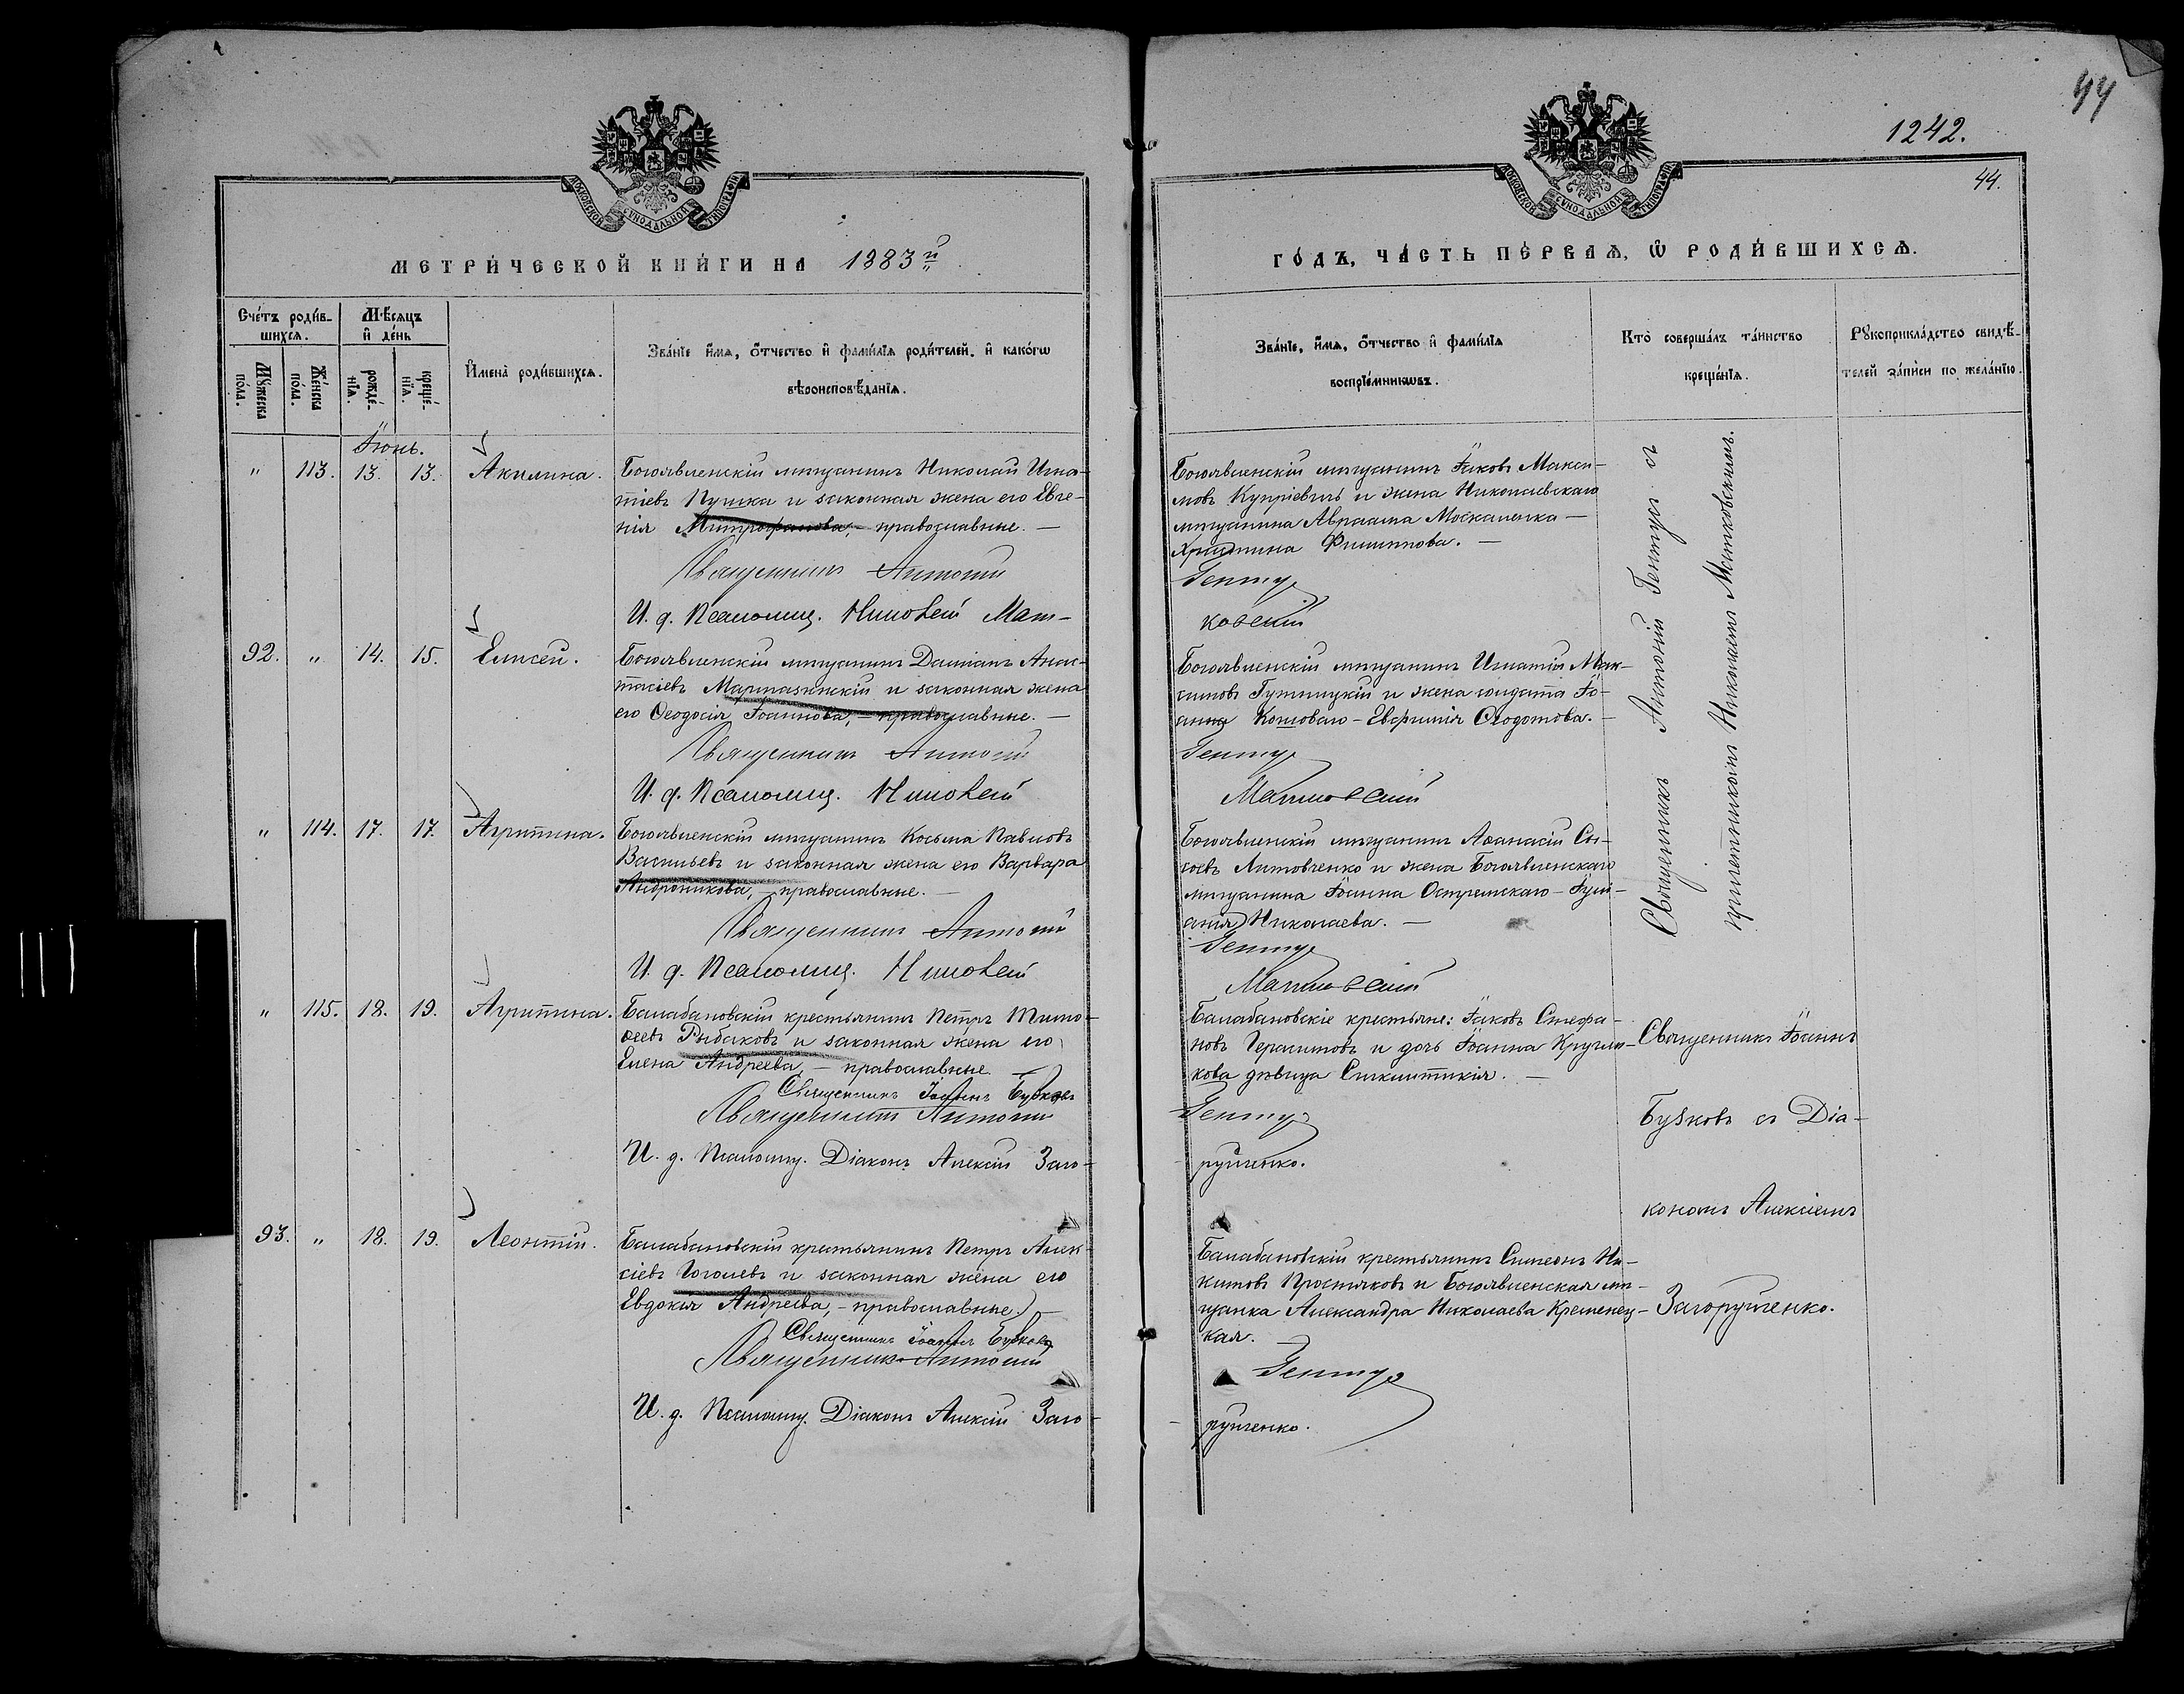 44
1242.
44.
МОСКОВСКОЙ СѴНОДАЛЬНОЙ ТИПОГРАФІИ
МОСКОВСКОЙ СѴНОДАЛЬНОЙ ТИПОГРАФІИ
МЕТРИ́ЧЕСКОЙ КНИ́ГИ НА 1883й
ГО́ДЪ, ЧА́СТЬ ПЕ́РВАѦ, Ѿ РОДИ́ВШИХСѦ.
Сче́тъ роди́в-
шихсѧ.
Мꙋ́жеска
по́ла.
Же́нска
по́ла.
Мѣ́сѧцъ
и҆ де́нь
рожде́-
нїѧ.
креще́-
нїѧ.
И҆мена̀ роди́вшихсѧ.
Зва́нїе и҆́мѧ, ѻ҆́тчество и҆ фами́лїѧ роди́телей, и҆ како́гѡ
вѣроисповѣ́данїѧ.
Зва́нїе, и҆́мѧ, ѻ҆́тчество и҆ фами́лїѧ
воспрїе́мникѡвъ.
Кто̀ соверша́лъ та́инство
креще́нїѧ.
Рꙋкоприкла́дство свидѣ́-
телей за́писи по жела́нїю.
Іюнь.
" 113. 13. 13. Акилина.
Богоявленскій мѣщанинъ Николай Игна-
тіевъ Пушка и законная жена его Евге-
нія Митрофанова, - православные. -
Священникъ Антоній
И. д. Псаломщ. Николай Мат-
Богоявленскій мѣщанинъ Іаковъ Макси-
мовъ Купріевичъ и жена Николаевскаго
мѣщанина Авраама Москаленка -
Христина Филиппова. -
Гентуз
ковскій
92. " 14. 15. Елисей.
Богоявленскій мѣщанинъ Даміанъ Анас-
тасіевъ Мартазинскій и законная жена
его Ѳеодосія Іоаннова, - православные. -
Священникъ Антоній
И. д. Псаломщ. Николай
Богоявленскій мѣщанинъ Игнатій Мак-
симовъ Гутницкій и жена солдата Іо-
анна Котоваго - Евфимія Ѳеодотова. -
Гентуз
Матковскій
" 114. 17. 17. Агриппина.
Богоявленскій мѣщанинъ Косьма Павловъ
Васильевъ и законная жена его Варвара
Андроникова, - православные. -
Священникъ Антоній
И. д. Псаломщ. Николай
Богоявленскій мѣщанинъ Аѳанасій Сы-
соевъ Литовченко и жена Богоявленскаго
мѣщанина Іоанна Остремскаго - Іули-
анія Николаева. -
Гентуз
Матковскій
Священникъ Антоній Гентуз съ
причетникомъ Николаемъ Матковскимъ.
" 115. 18. 19. Агриппина.
Балабановскій крестьянинъ Петръ Тимо-
ѳеевъ Рыбаковъ и законная жена его
Елена Андреева, - православные -
Священникъ Іоаннъ Бузковъ
Священникъ Антоній
И. д. Псаломщ. Діаконъ Алексій Заго-
Балабановскіе крестьяне: Іаковъ Стефа-
новъ Герасимовъ и дочь Іоанна Кругли-
кова дѣвица Синклитикія. -
Гентуз
рульченко.
Священникъ Іоаннъ
Бузковъ съ Діа-
кономъ Алексіемъ
Загорульченко.
93. " 18. 19. Леонтій.
Балабановскій крестьянинъ Петръ Алек-
сіевъ Гоголевъ и законная жена его
Евдокія Андреева, - православные. -
Священникъ Іоаннъ Бузковъ
Священникъ Антоній
И. д. Псаломщ. Діаконъ Алексій Заго-
Балабановскій крестьянинъ Симеонъ Ни-
китовъ Простяковъ и Богоявленская мѣ-
щанка Александра Николаева Кременец-
кая. -
Гентуз
рульченко.